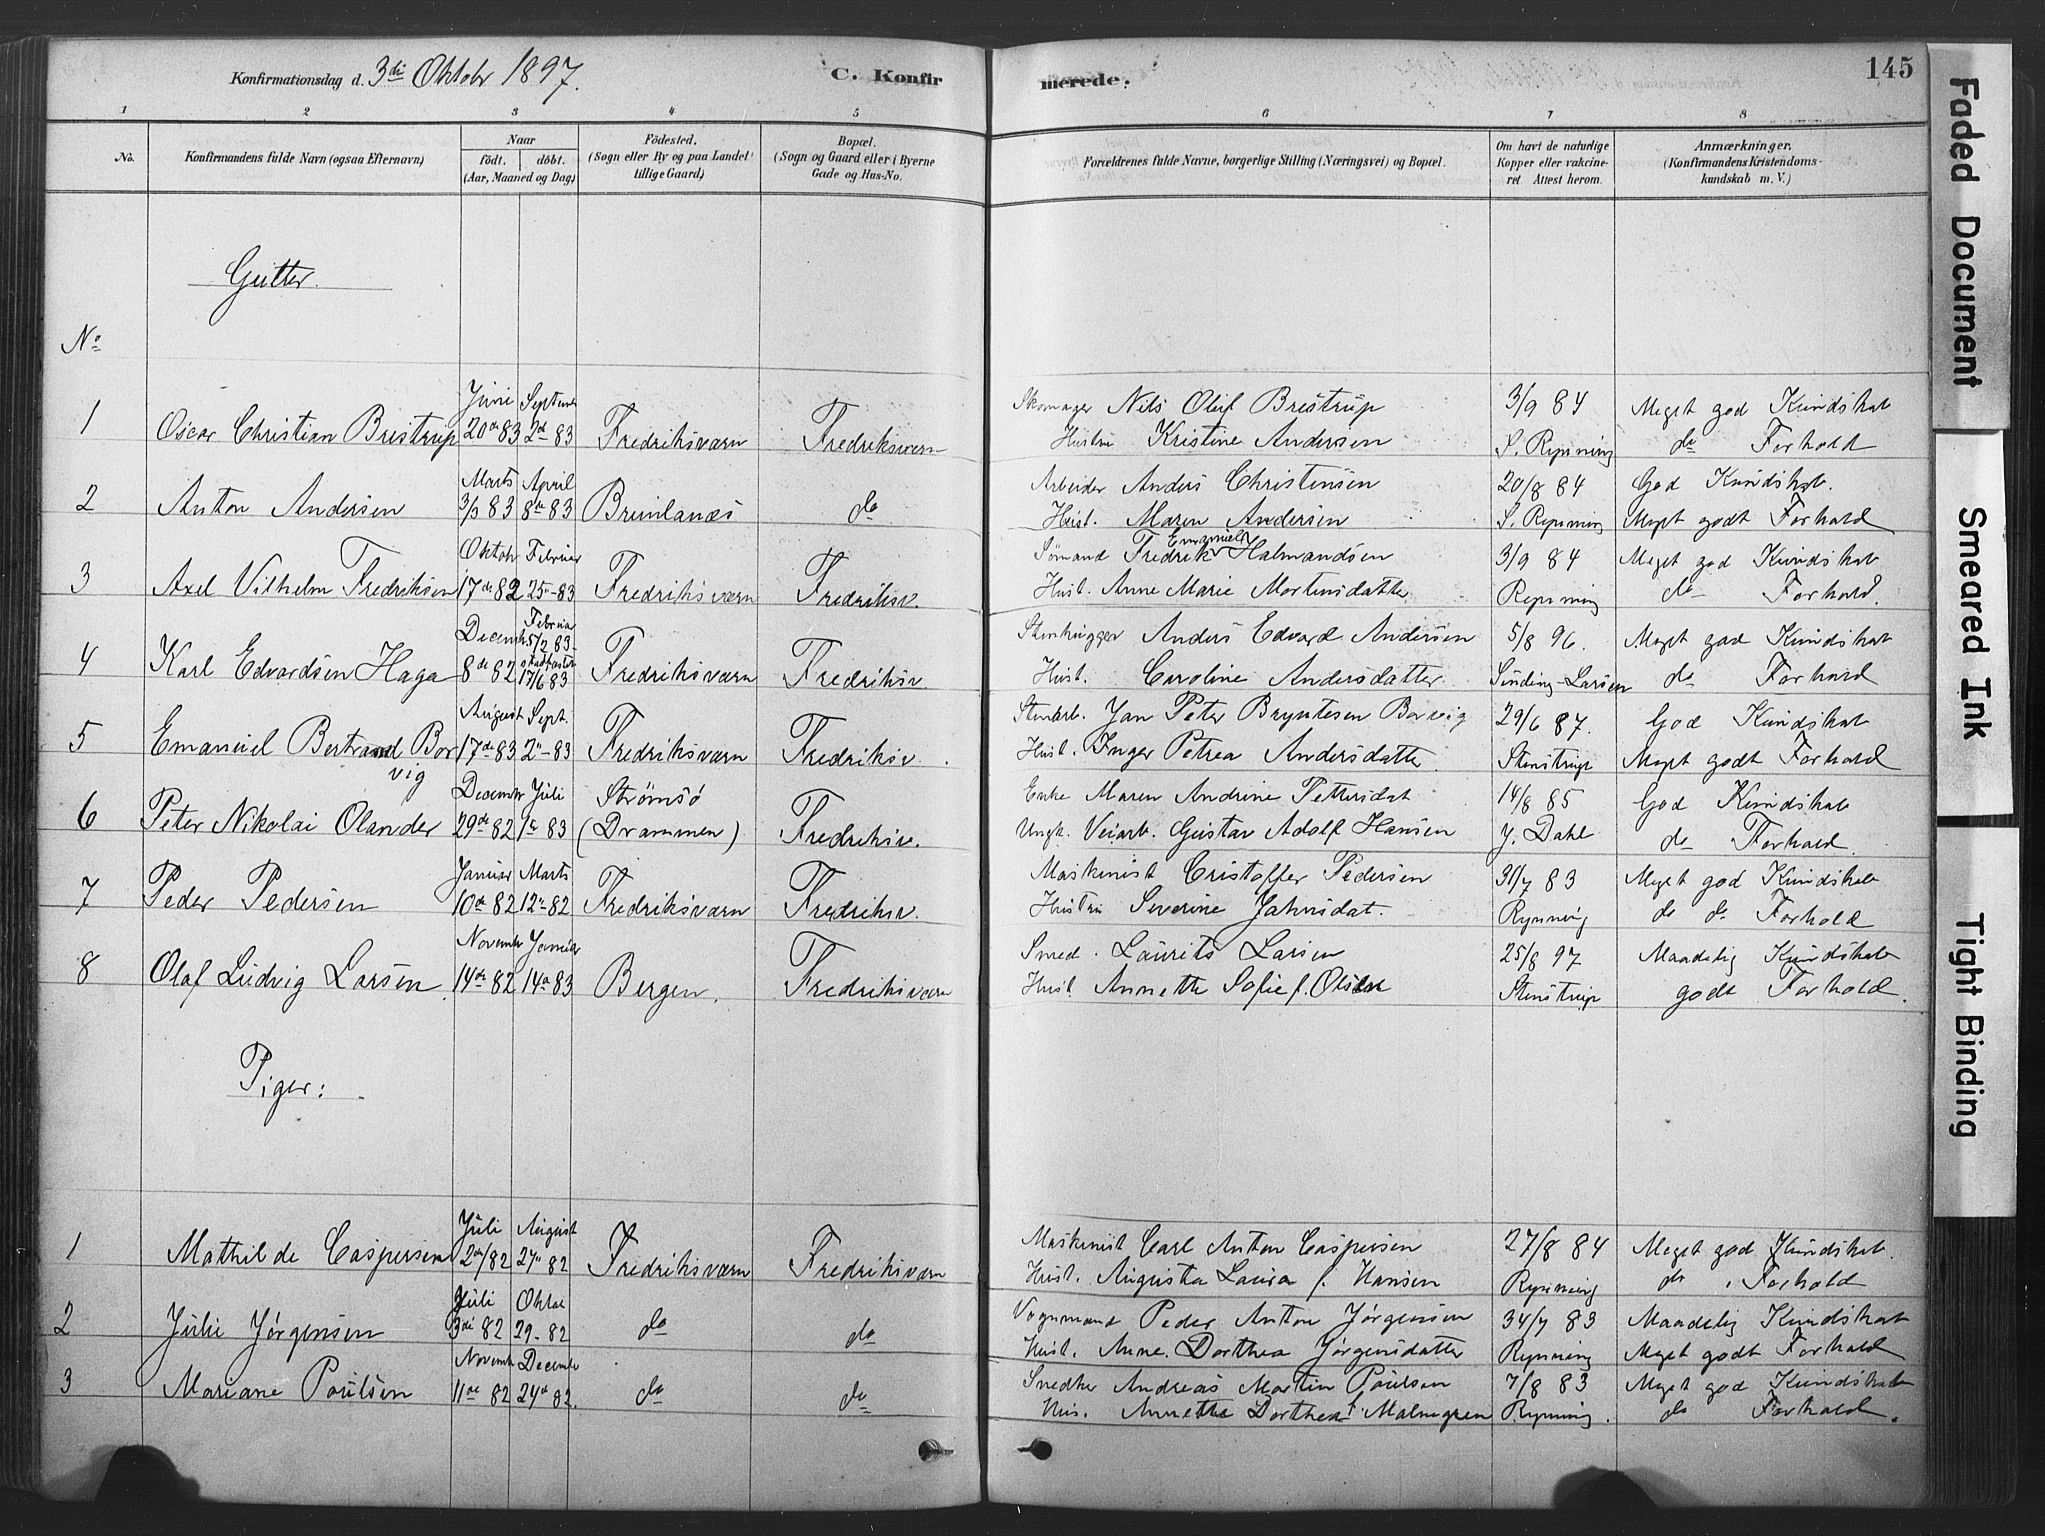 Konfirmationsdag d. 3di Oktobr 1897.
C. Konfirmerede.
145
1 2 3 4 5 6 7 8
No.
Konfirmandens fulde Navn (ogsaa Efternavn)
Naar
födt. döbt.
(Aar, Maaned og Dag)
Födested.
(Sogn eller By og paa Landet
tillige Gaard)
Bopæl.
(Sogn og Gaard eller i Byerne
Gade og Hus-No.
Forældrenes fulde Navne, borgerlige Stilling (Næringsvei) og Bopæl.
Om havt de naturlige
Kopper eller vakcine-
ret Attest herom.
Anmærkninger.
(Konfirmandens Kristendoms-
kundskab m. V.)
Gutter.
No
1 Oscar Christian Brestrup Juni 20de 83 Septembr 2d 83 Fredriksværn Fredriksværn
Skomager Nils Oluf Brestrup 3/9 84 Meget god Kundskab
Hustru Kristine Andersen S. Rynning do Forhold
2 Anton Andersen Marts 3/3 83 April 8de 83 Brunlanæs do
Arbeider Anders Christensen 20/8 84 God Kundskab.
Hust. Maren Andersen S. Rynning Meget godt Forhold
3 Axel Vilhelm Fredriksen Oktobr 17de 82 Februar 25 - 83 Fredriksværn Fredriksv.
Sømand Fredrik Emanuel Halmandsen 3/9 84 Meget god Kundskab
Hust. Anne Marie Mortensdatter Rynning do Forhold.
4 Karl Edvardsen Haga Decemb. 8de 82 Februar 5/2 83 stadfæstet 17/6 83 Fredriksværn Fredriksv.
Stenhugger Anders Edvard Andersen 5/8 96. Meget god Kundskab
Hust. Caroline Andersdatter Sinding-Larsen do Forhold
5 Emanuel Bertrand Borvig August 17de 83 Sept. 2 - 83 Fredriksværn Fredriksv.
Stenarb. Jan Peter Bryntesen Borvig 29/6 87. God Kundskab
Hust. Inger Petrea Andersdatter Stenstrup Meget godt Forhold
6 Peter Nikolai Olander Decembr 29de 82 Juli 1ste 83 Strømsö (Drammen) Fredriksv.
Enke Maren Andrine Pettersdat 14/8 85 God Kundskab
Ungk. Veiarb. Gustav Adolf Hansen J. Dahl do Forhold.
7 Peder Pedersen Januar 10de 82 Marts 12 82 Fredriksværn Fredriksv.
Maskinist Cristoffer Pedersen 31/7 83 Meget god Kundskab
Hustru Severine Jahnsdat. Rynning do do Forhold
8 Olaf Ludvig Larsen Novembr 14de 82 Januar 14de 83 Bergen. Fredriksværn
Smed. Laurits Larsen 25/8 97 Maadelig Kundskab
Hust. Annette Sofie f. Olsen Stenstrup godt Forhold.
Piger:
1 Mathilde Caspersen Juli 2de/82 August 27 82 Fredriksværn Fredriksværn
Maskinist Carl Anton Caspersen 27/8 84 Meget god Kundskab.
Hust. Augusta Laura f. Hansen Rynning do Forhold
2 Julie Jørgensen Juli 3di 82 Oktor 29 - 82 do do
Vognmand Peder Anton Jørgensen 34/7 83 Maadelig Kundskab
Hust. Anne Dorthea Jörgensdatter Rynning Meget godt Forhold
3 Mariane Poulsen Novembr 11de 82 Decembr 24de 82. do do
Snedker Andreas Martin Poulsen 7/8 83 Meget god Kundskab
Hus. Annette Dorthea f. Malmgren Rynning. do Forhold.
Faded Document
Smeared Ink
Tight Binding